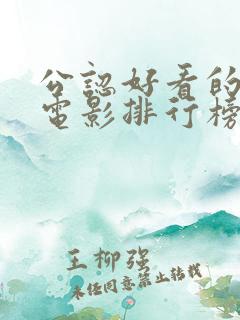 公認好看的
電影排行榜
王柳强
未经同意禁止转载